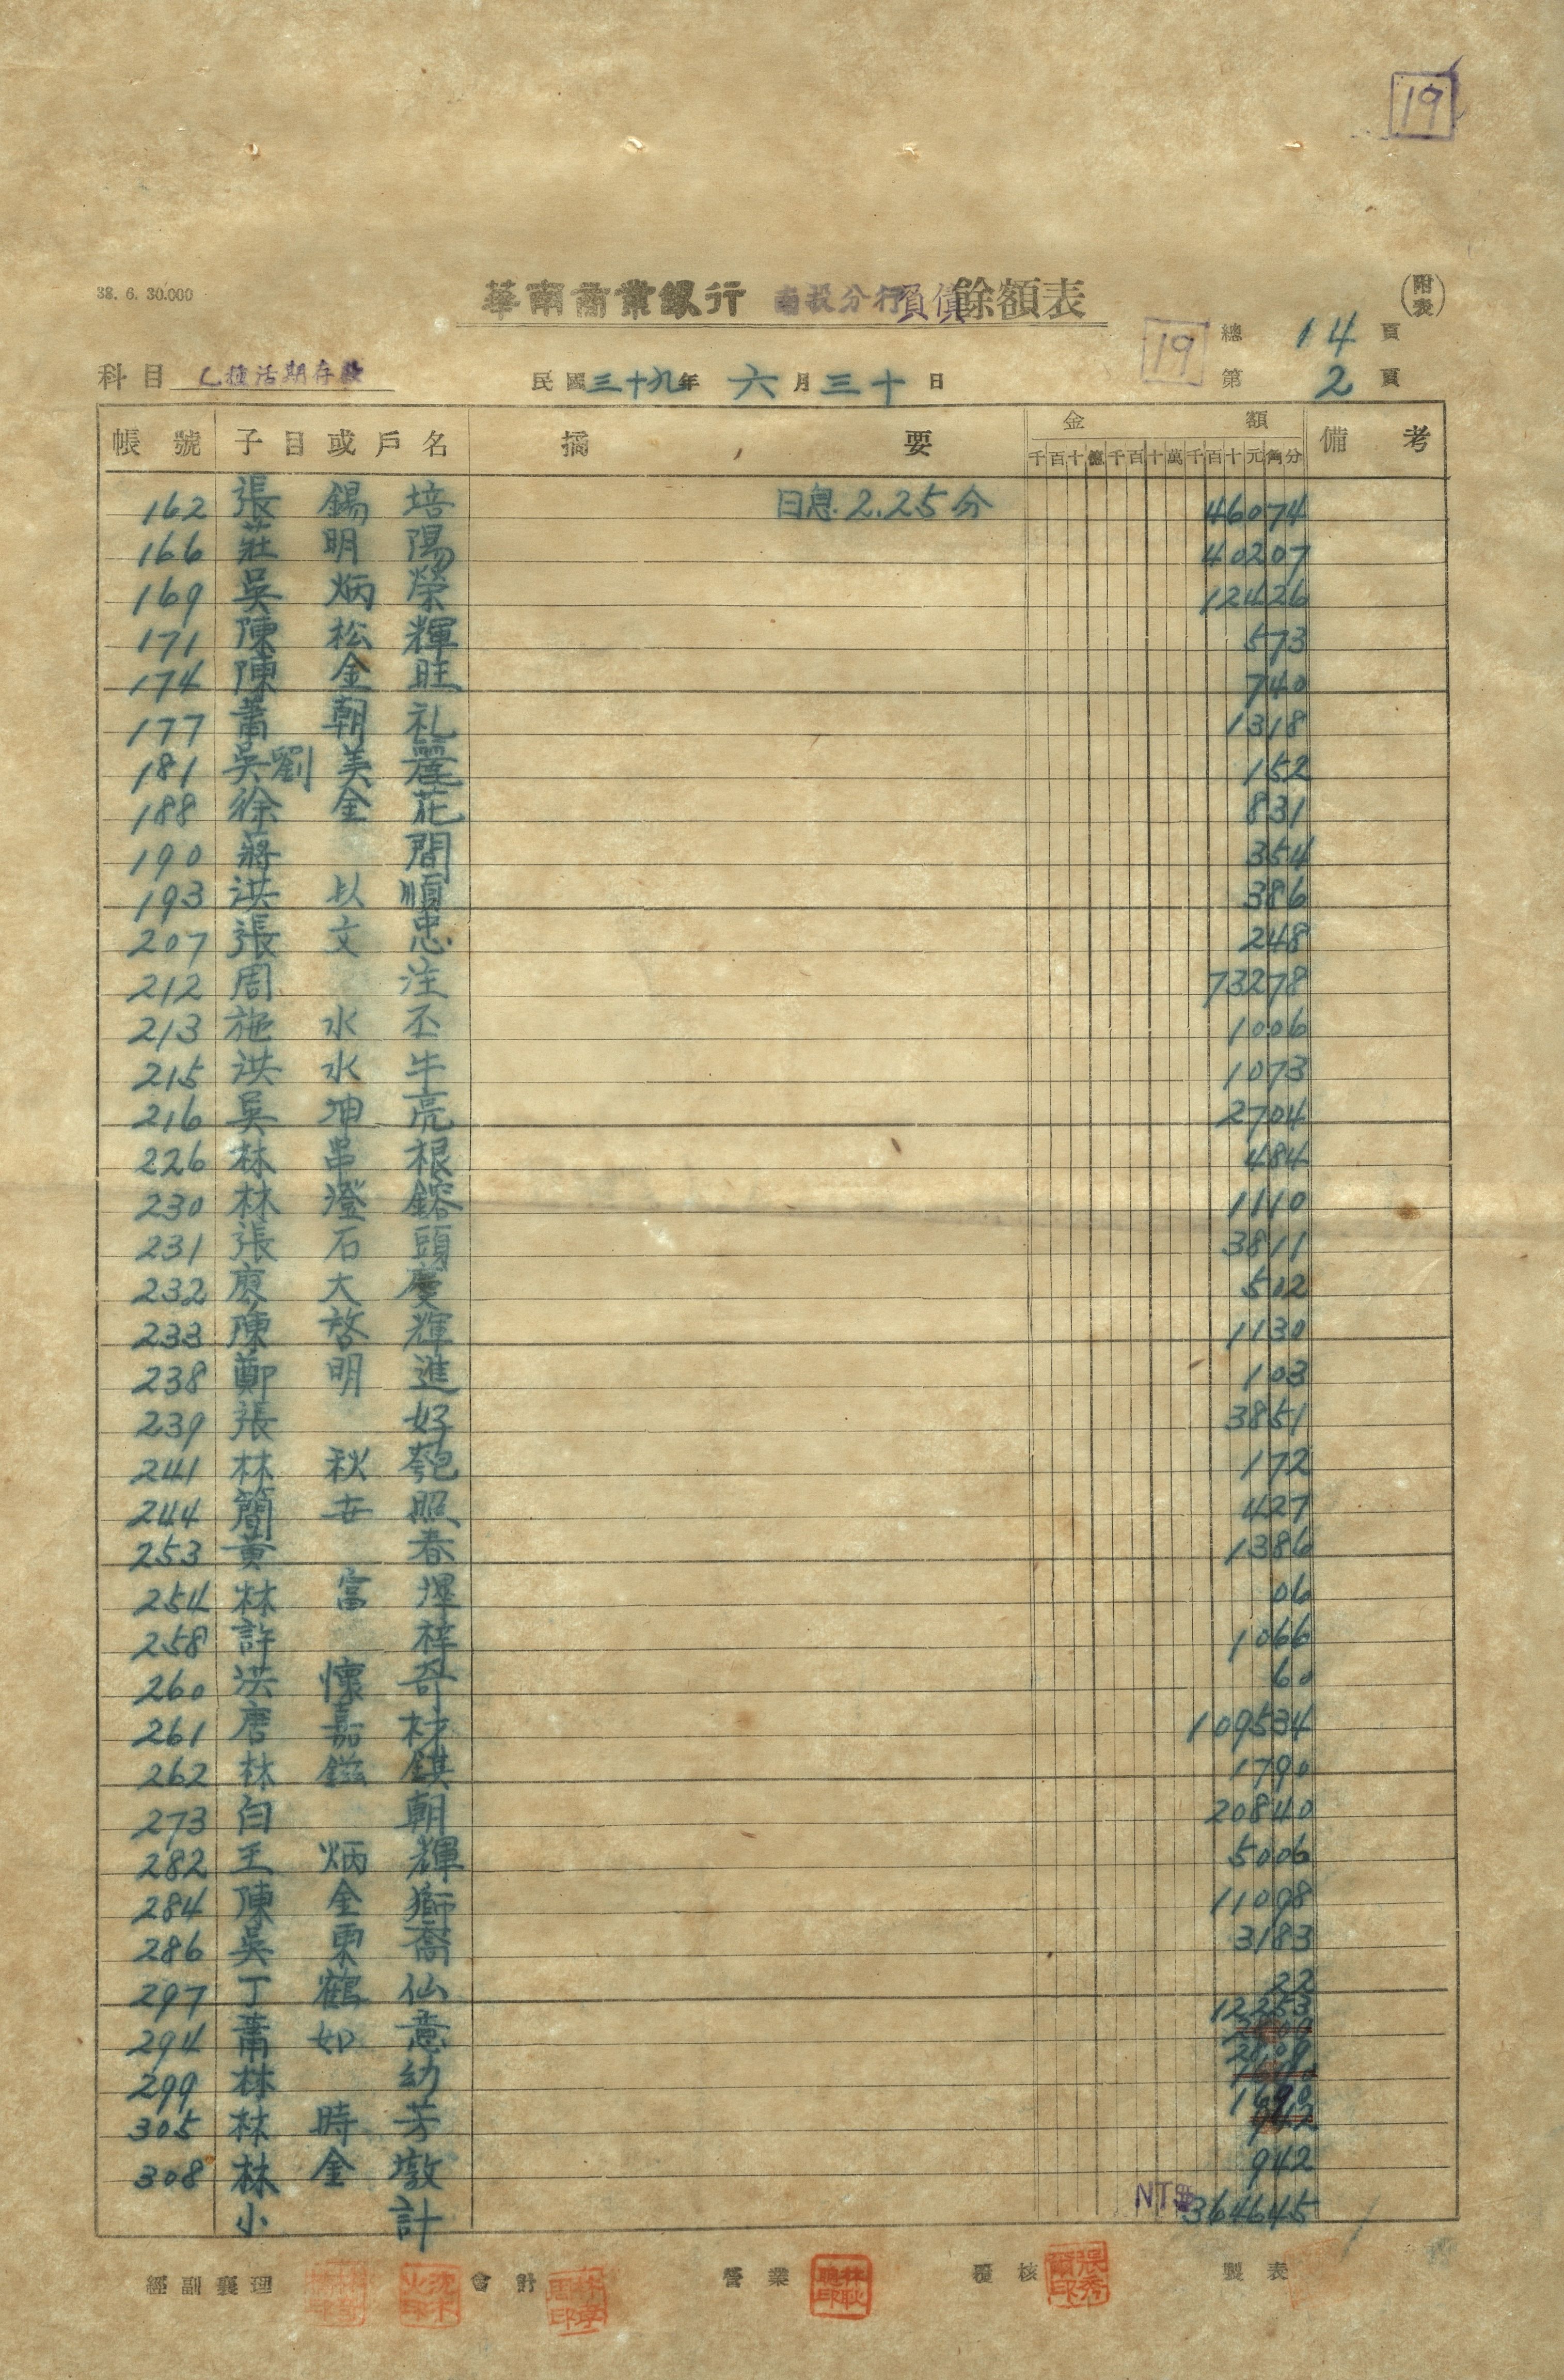 19
38. 6. 30.000
華南商業銀行 南投分行負債餘額表 (附表)
19 總 14 頁
科目 乙種活期存款 民國三十九年 六月三十日 第 2 頁
帳號 子目或戶名 摘要 金額 備考
千百十億千百十萬千百十元角分
162 張錫培 日息 2.25分 46074
166 莊明陽 40207
169 吳炳榮 12426
171 陳松輝 573
174 陳金旺 740
177 蕭朝礼 1318
181 吳劉美麗 152
188 徐金花 831
190 蔣問 354
193 洪以順 386
207 張文忠 248
212 周注 73278
213 施水丕 1006
215 洪水牛 1073
216 吳坤亮 2704
226 林串根 484
230 林澄鎔 1110
231 張石頭 3811
232 廖大慶 502
233 陳啓輝 1130
238 鄭明進 103
239 張好 3851
241 林秋匏 172
244 簡世照 427
253 黃春 1386
254 林富 06
258 許梓 1066
260 洪懷奇 60
261 唐嘉材 109534
262 林鎡錤 1790
273 白朝 20840
282 王炳輝 5006
284 陳金獅 11098
286 吳栗喬 3183
297 丁鶴仙 22
12253
294 蕭如意 2809
299 林幼 1690
305 林時芳 942
308 林金墩 942
小計 NT$364645
經副襄理 會計 營業 林耿聰印 覆核 張秀爾印 製表